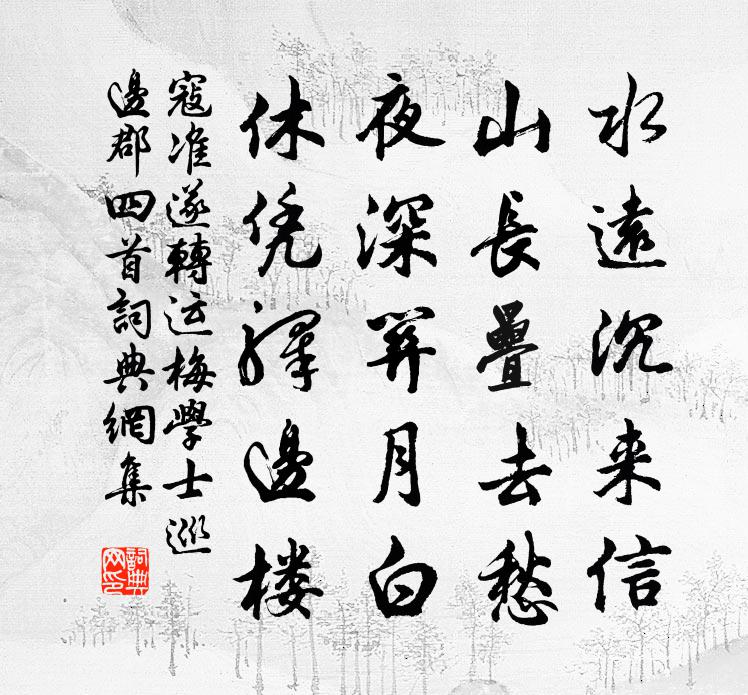 水遠沉来信
山長疊去愁
夜深月白
休凭驛邊楼
寇准送轉运梅學士巡
邊郡四首詞典網集
詞典
网印